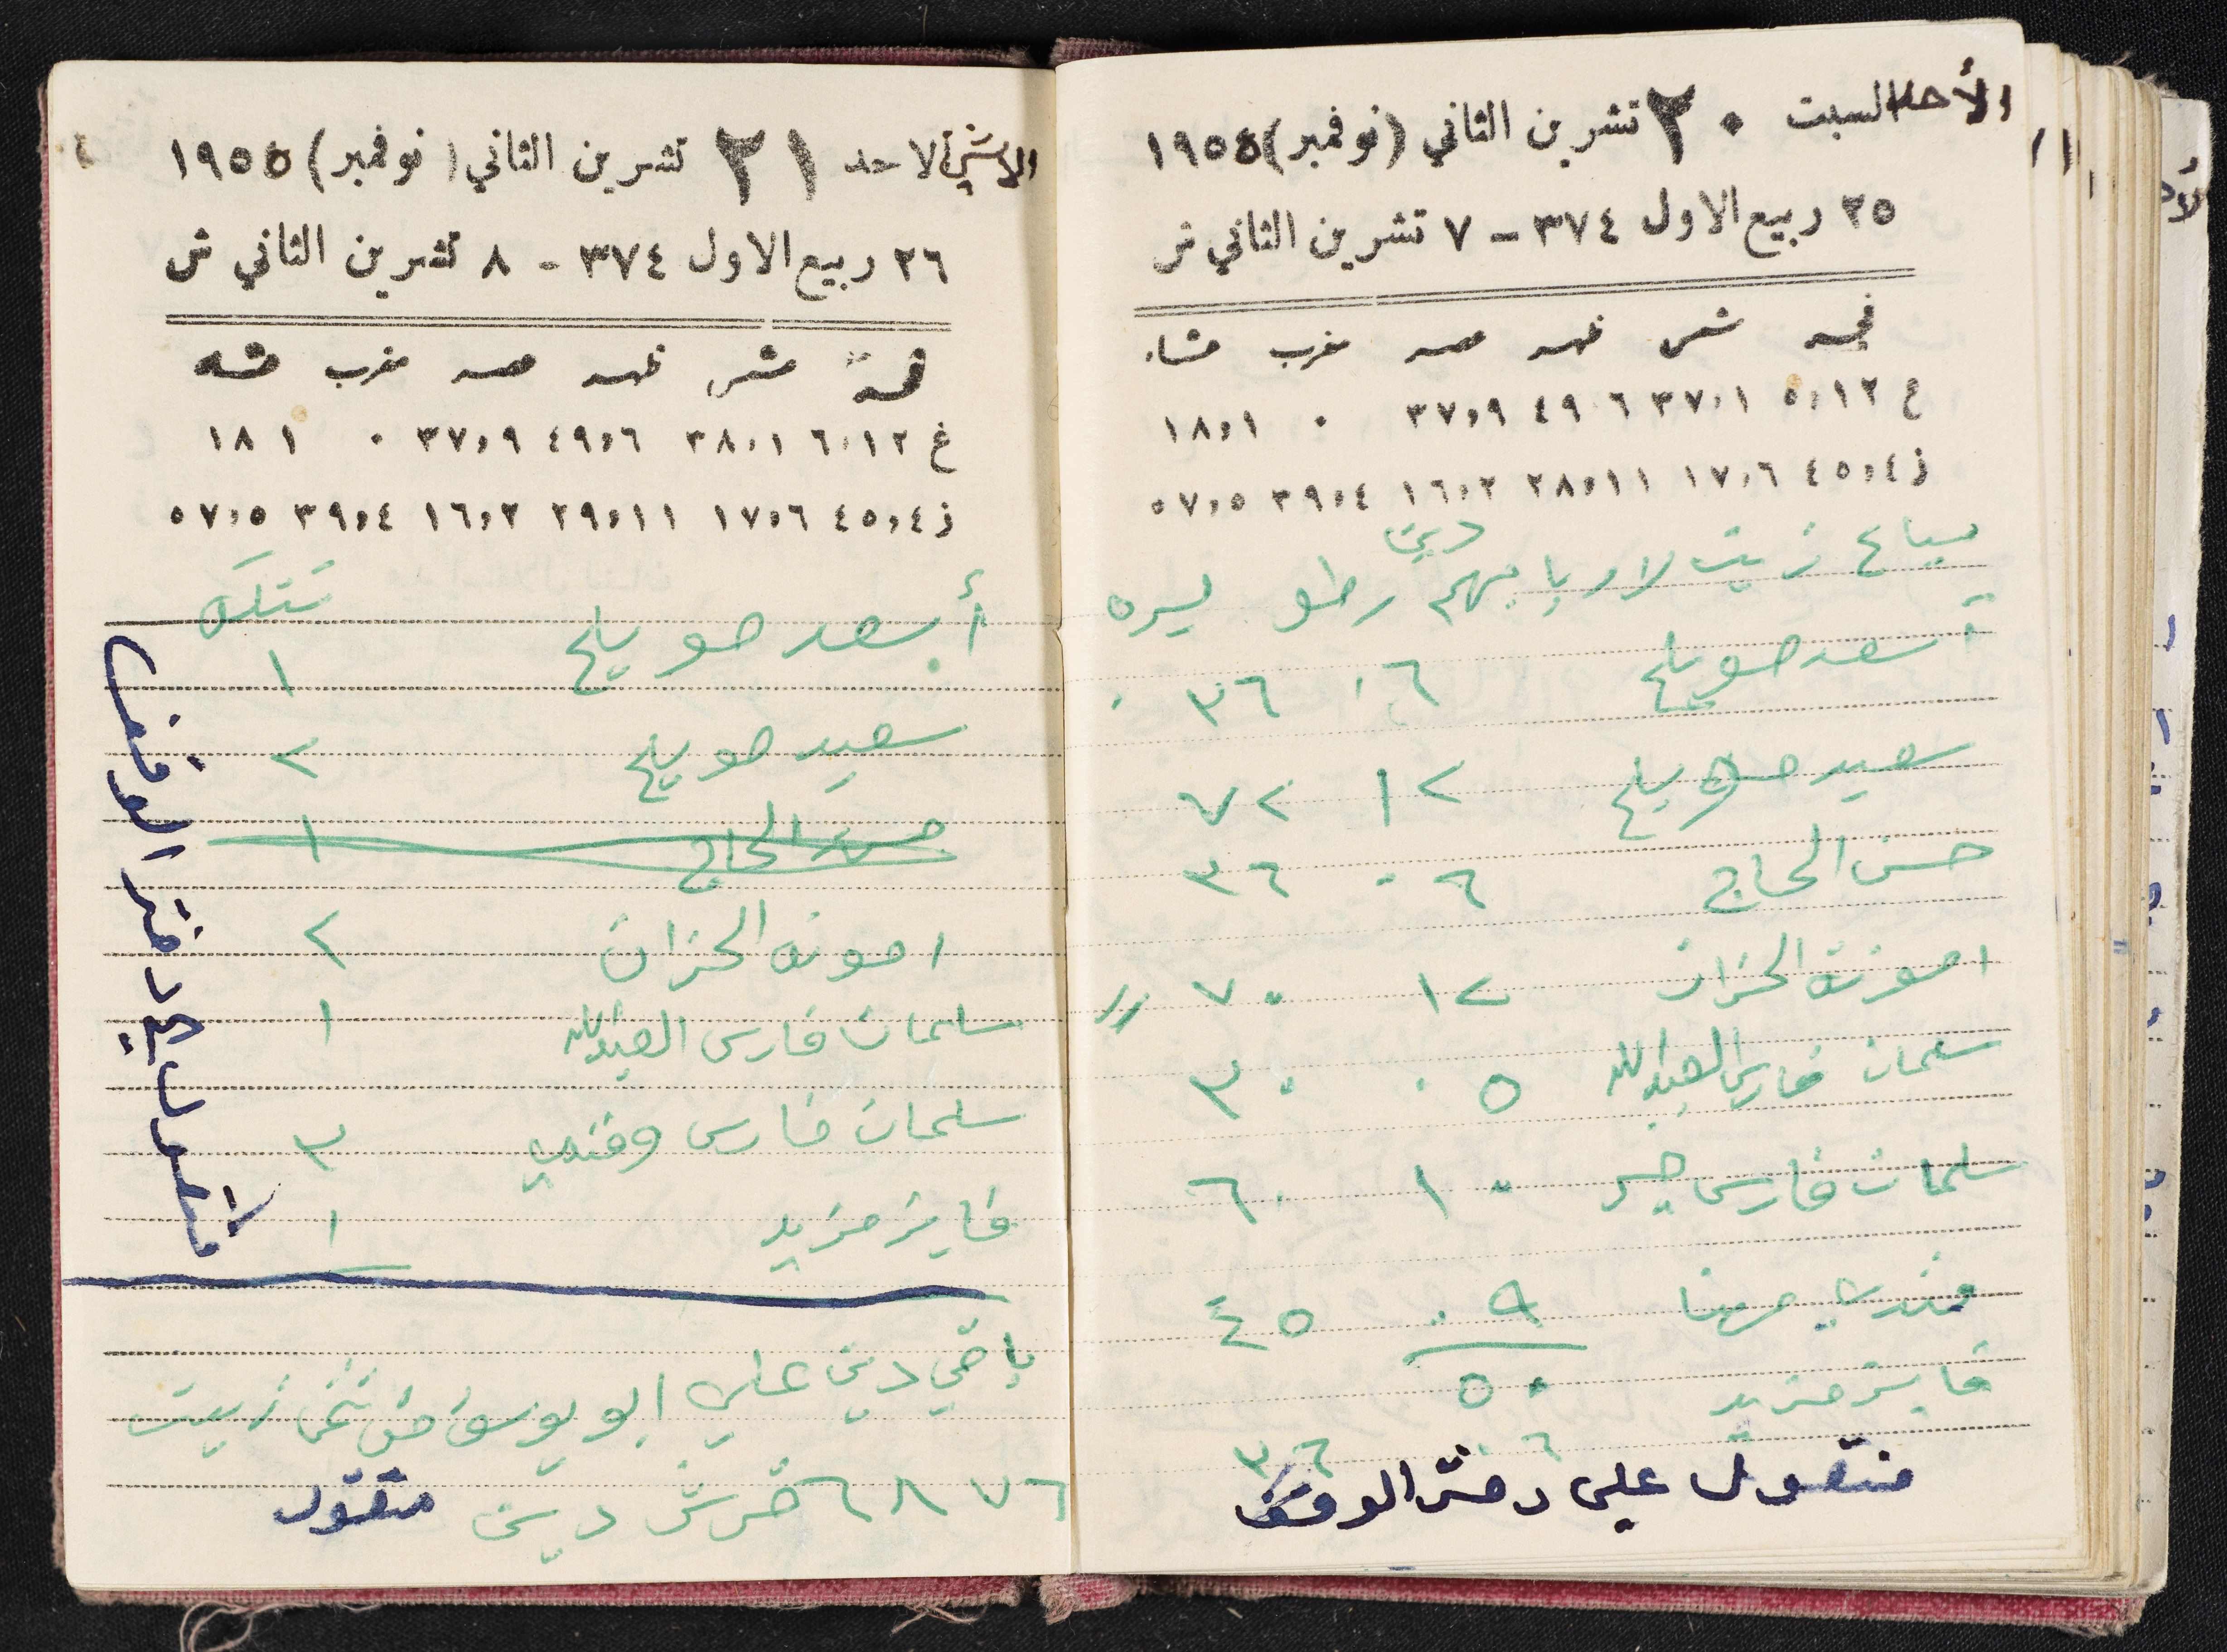 الأحد السبت ٢٠ تشرين الثاني (نوفمبر) ١٩٥٥
٢٥ ربيع الاول ٣٧٤ - ٧ تشرين الثاني ش
فجر شمس ظهر عصر مغرب عشاء
غ ٥،١٢ ٣٧،١ ٤٩،٦ ٣٧،٩ ٠ ١٨،١
ز ٤٥،٤ ١٧،٦ ٢٨،١١ ١٦،٢ ٣٩،٤ ٥٧،٥
مباع زيت لاربابهم دين رطل ليره
أسعد صويلح ٠٦ ٣٦
سعيد صويلح ١٢ ٧٢
حسن الحاج ٠٦ ٣٦
الخزان ١٢ ٧٠ //
سلمان فارس العبدالله ٠٥ ٣٠
سلمان فارس ١٠ ٦٠
مهنا ٠٩ ٤٥
٥٠
فايز مزيد
٠٦ ٣٦
منقول على دفتر الوقف
الاثنين الاحد ٢١ تشرين الثاني (نوفمبر) ١٩٥٥
٢٦ ربيع الاول ٣٧٤ - ٨ تشرين الثاني ش
شمس ظهر عصر مغرب
غ ٦،١٢ ٣٨،١ ٤٩،٦ ٣٧،٩ ٠ ١٨ ١
ز ٤٥،٤ ١٧،٦ ٢٩،١١ ١٦،٢ ٣٩،٤ ٥٧،٥
تنكه
أسعد صويلح ١
سعيد صويلح ٢
حسن الحاج ١
الخزان ٢
سلمان فارس العبدالله ١
سلمان فارس وفندي ٣
فايز مزيد ١
منقول على دفتر الوقف
باقي دين على ابو يوسف من ثمن زيت
٦٨٧٦ قرش دين منقول